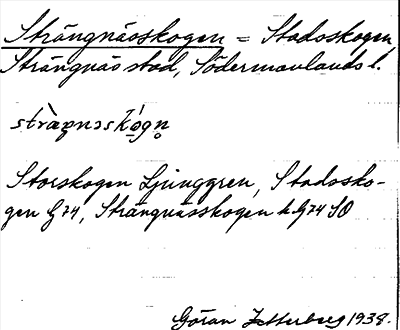 Strängnässkogen = Stadsskogen,
Strängnäs stad, Södermanlands l.
Storskogen Ljunggren, Stadssko-
gen G 74, Strängnässkogen h G 74 SO
Göran Zetterberg 1938.